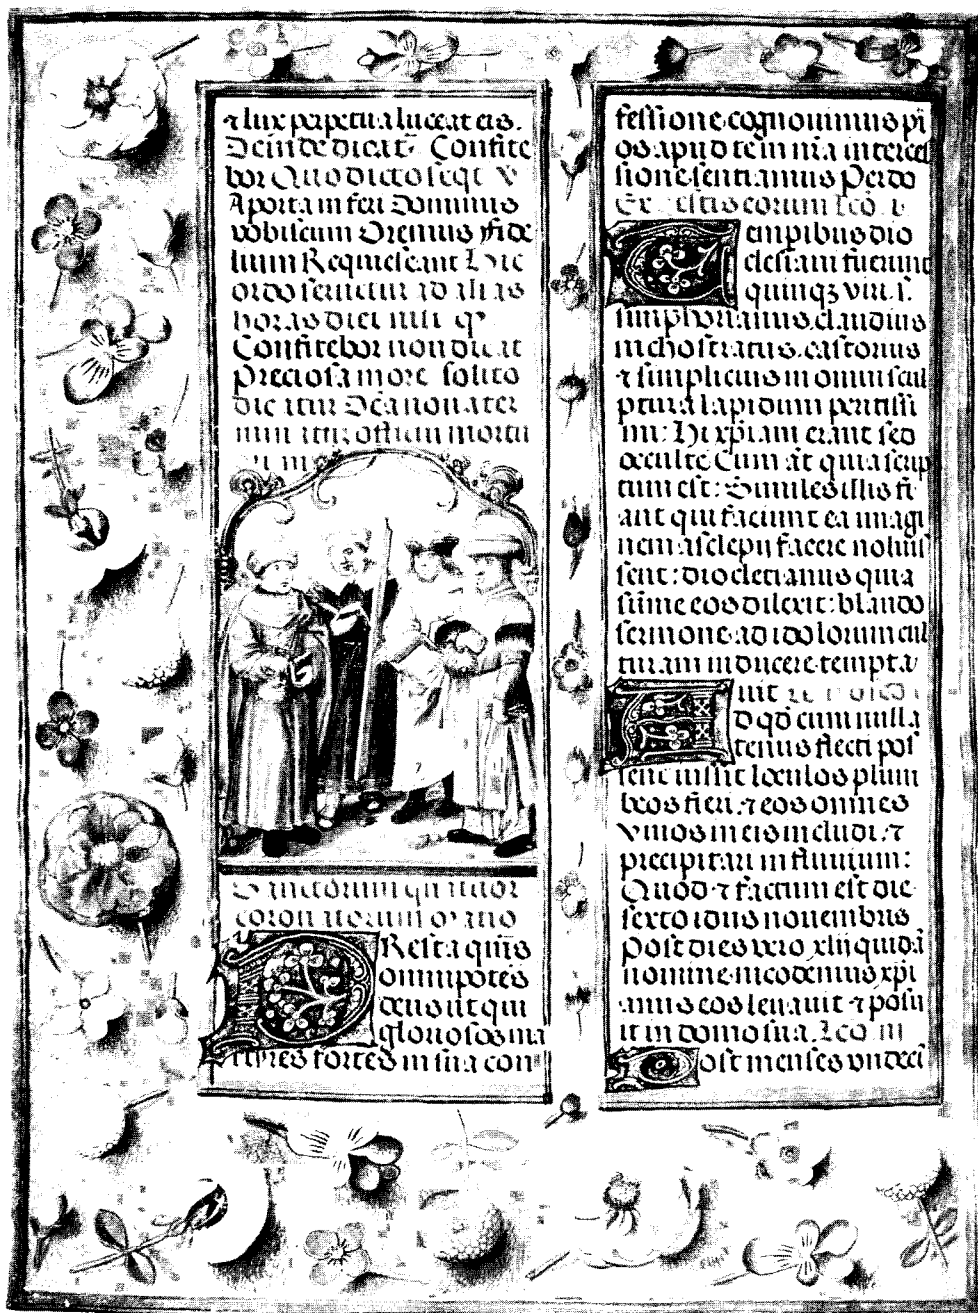 ⁊ lux perpetua luceat eis.
Deinde dicat᷑ Confite
bor Quo dicto seqt᷑ ℣
A porta inferi Dominus
vobiscum Oremus fide
lium Requiescant Hic
ordo seruetur ad alias
horas diei nisi qꝫ
Confitebor non dicat᷑
Preciosa more solito
dicitur
officium mortu
Sanctorum quatuor
coronatorum oratio
PResta qums̄
omnipotēs
deus ut qui
gloriosos ma
rtires fortes in sua con
fessione cognouimus pi
os apud te in nr̄a interces
sione sentiamus Per do
eorum Leo. i
TEmpibus dio
cletiani fuerunt
quinqꝫ viri. s.
simphorianus. claudius
nichostratus. castorius
⁊ simplicius in omni scul
ptura lapidum peritissi
mi: Hi xp̄iani erant sed
occulte Cum at̄ quia scrip
tum est: Similes illis fi
ant qui faciunt ea imagi
nem asclepii facere noluis
sent: diocletianus quia
sūme eos dilexit: blando
sermone ad idolorum cul
turam inducere tempta
uit
AD qd̄ cum nulla
tenus flecti pos
sent iussit loculos plum
beos fieri. ⁊ eos omnes
viuos in eis includi. ⁊
precipitari in fluuium:
Quod ⁊ factum est die
sexto idus nouembris
Post dies vero xlii quidā
nomine nicodemus xp̄i
anus eos leuauit ⁊ posu
it in domo sua. Leo. iii
Post menses vndeci